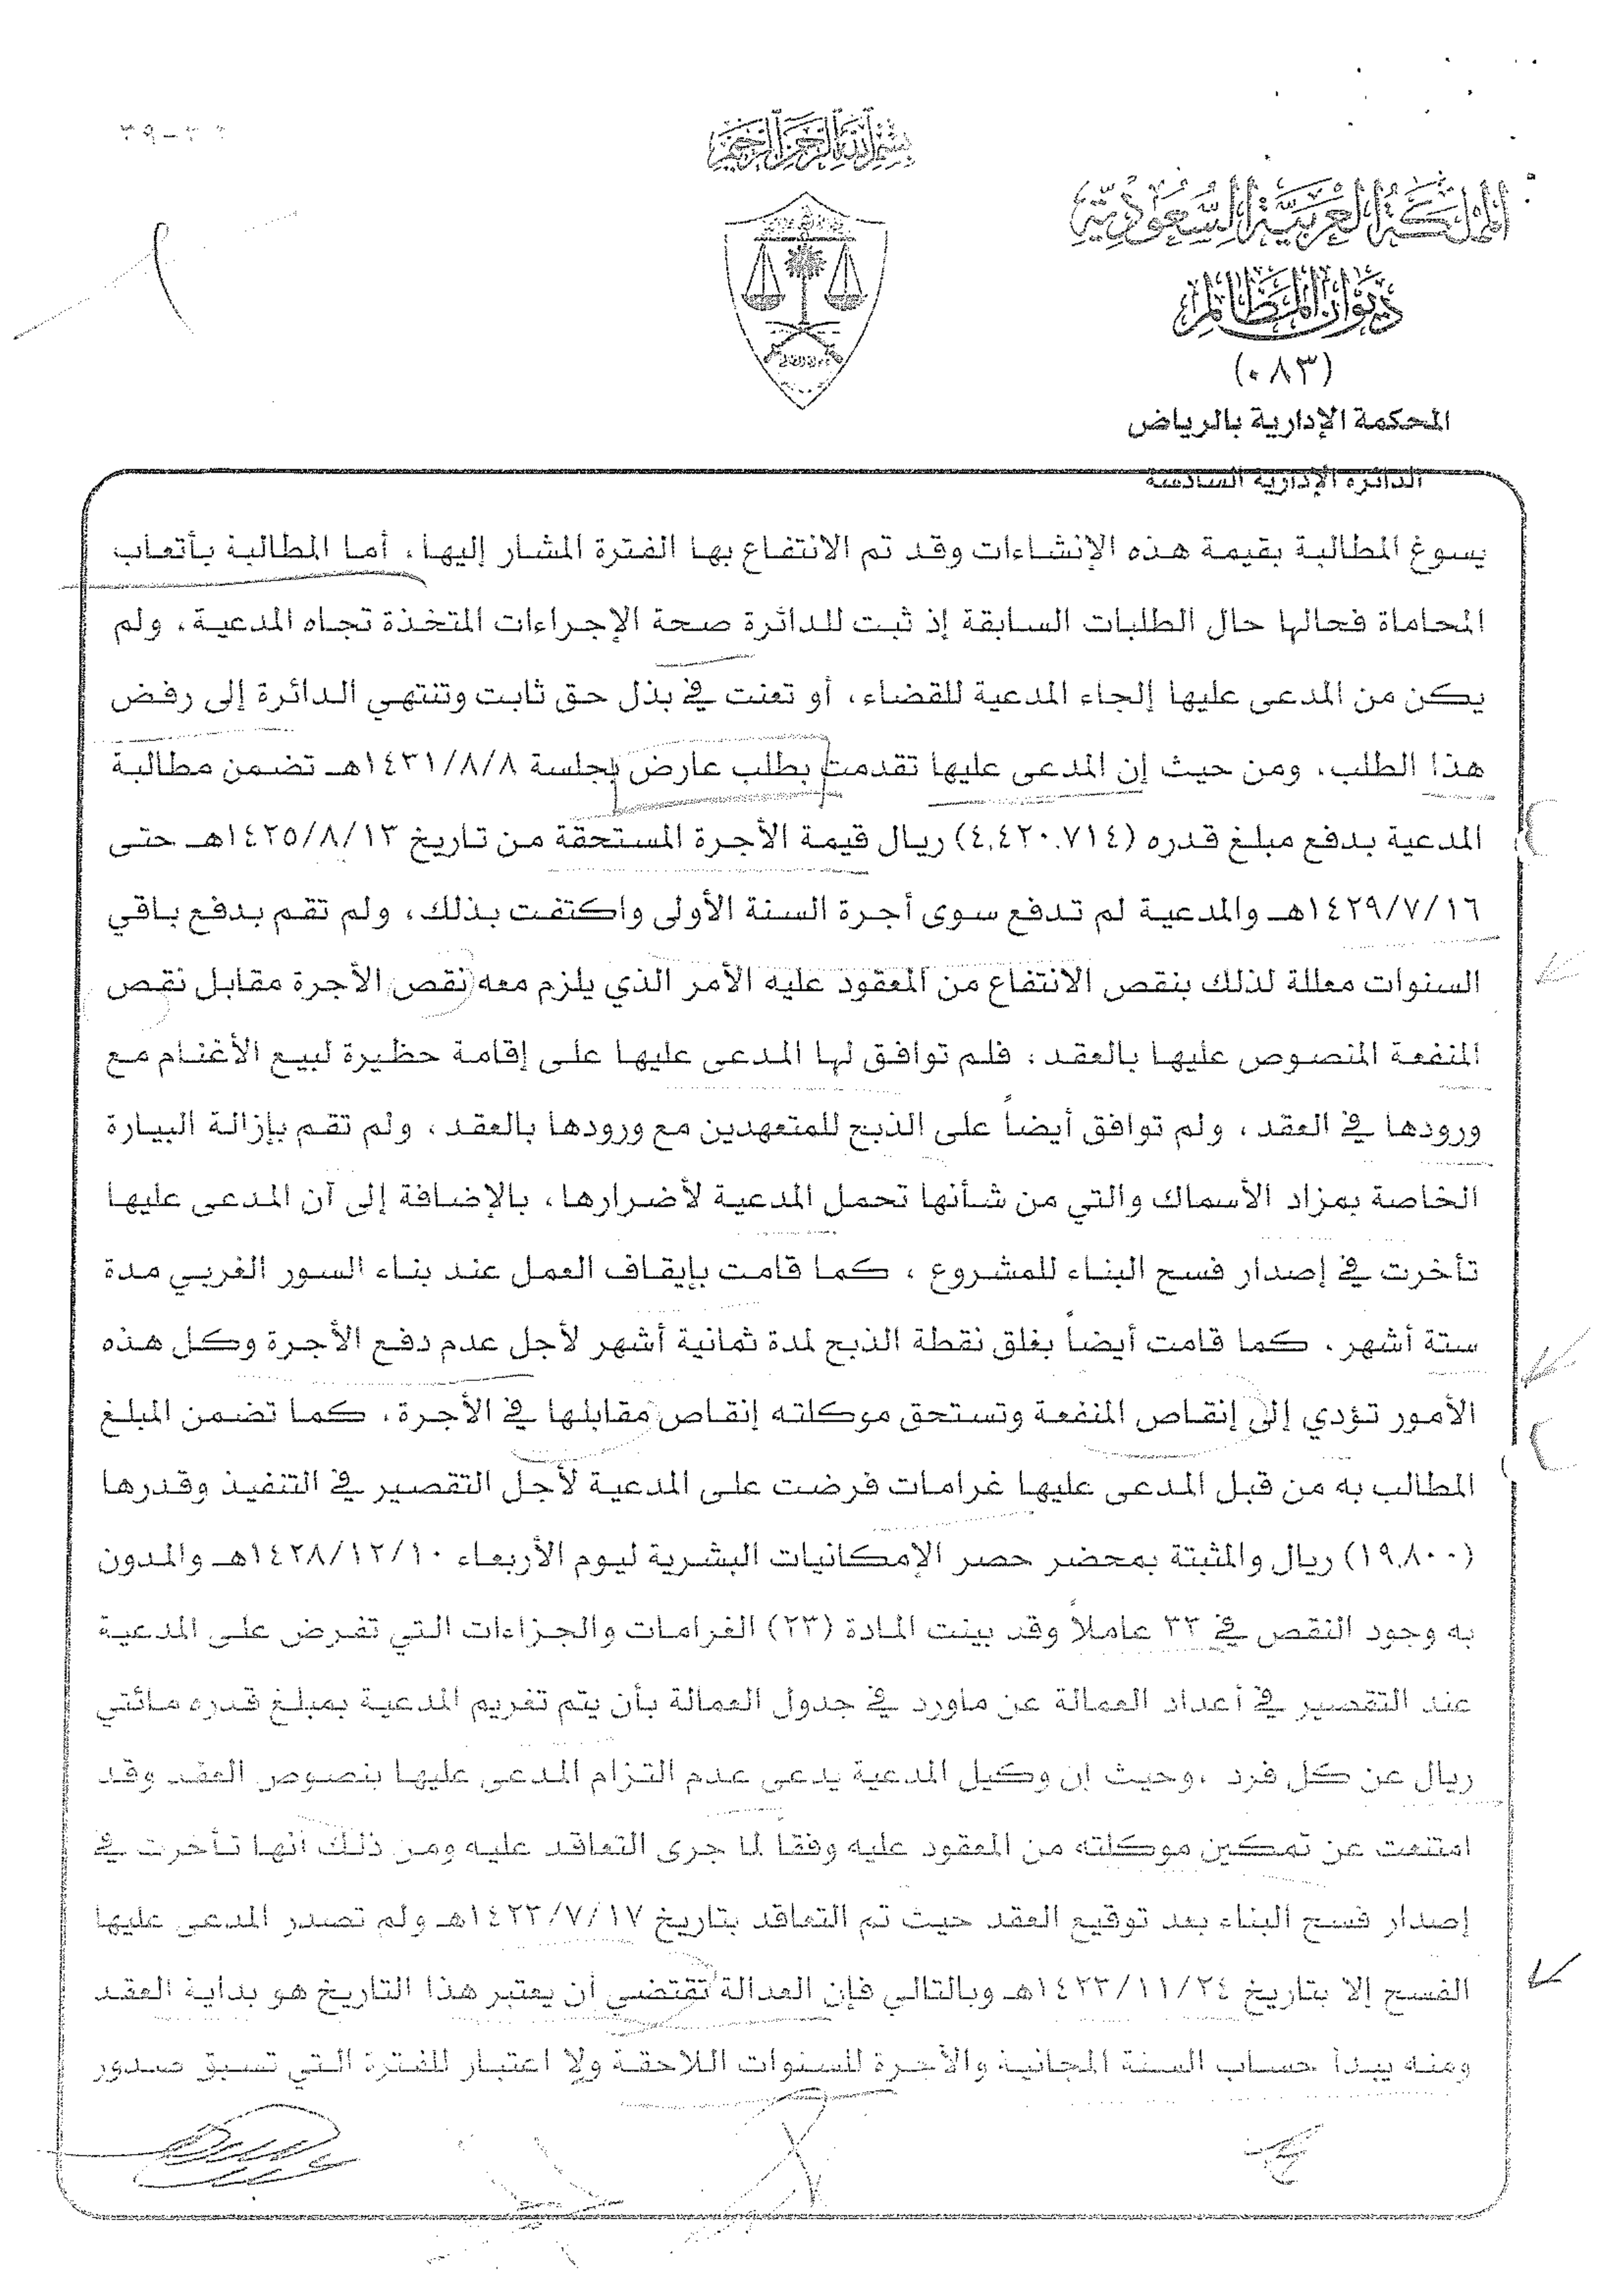 بسم الله الرحمن الرحيم
المملكة العربية السعودية
ديوان المظالم
(٠٨٣)
المحكمة الإدارية بالرياض
الدائرة الإدارية السادسة
يسوغ المطالبة بقيمة هذه الإنشاءات وقد تم الانتفاع بها الفترة المشار إليها، أما المطالبة بأتعاب
المحاماة فحالها حال الطلبات السابقة إذ ثبت للدائرة صحة الإجراءات المتخذة تجاه المدعية، ولم
يكن من المدعى عليها إلجاء المدعية للقضاء، أو تعنت في بذل حق ثابت وتنتهي الدائرة إلى رفض
هذا الطلب. ومن حيث إن المدعى عليها تقدمت بطلب عارض بجلسة ١٤٣١/٨/٨هـ تضمن مطالبة
المدعية بدفع مبلغ قدره (٤,٤٢٠.٧١٤) ريال قيمة الأجرة المستحقة من تاريخ ١٤٢٥/٨/١٣هـ حتى
١٤٢٩/٧/١٦هـ والمدعية لم تدفع سوى أجرة السنة الأولى واكتفت بذلك، ولم تقم بدفع باقي
السنوات معللة لذلك بنقص الانتفاع من المعقود عليه الأمر الذي يلزم معه نقص الأجرة مقابل نقص
المنفعة المنصوص عليها بالعقد : فلم توافق لها المدعى عليها على إقامة حظيرة لبيع الأغنام مع
ورودها في العقد ، ولم توافق أيضاً على الذبح للمتعهدين مع ورودها بالعقد ، ولم تقم بإزالة البيارة
الخاصة بمزاد الأسماك والتي من شأنها تحمل المدعية لأضرارها، بالإضافة إلى أن المدعى عليها
تأخرت في إصدار فسح البناء للمشروع ، كما قامت بإيقاف العمل عند بناء السور الغربي مدة
ستة أشهر، كما قامت أيضاً بغلق نقطة الذبح لمدة ثمانية أشهر لأجل عدم دفع الأجرة وكل هذه
الأمور تؤدي إلى إنقاص المنفعة وتستحق موكلته إنقاص مقابلها في الأجرة، كما تضمن المبلغ
المطالب به من قبل المدعى عليها غرامات فرضت على المدعية لأجل التقصير في التنفيذ وقدرها
(١٩,٨٠٠) ريال والمثبتة بمحضر حصر الإمكانيات البشرية ليوم الأربعاء ١٤٢٨/١٢/١٠هـ والمدون
به وجود النقص في ٣٣ عاملاً وقد بينت المادة (٢٣) الغرامات والجزاءات التي تفرض على المدعية
عند التقصير في أعداد العمالة عن ماورد في جدول العمالة بأن يتم تغريم المدعية بمبلغ قدره مائتي
ريال عن كل فرد ،وحيث إن وكيل المدعية يدعى عدم التزام المدعى عليها بنصوص العقد وقد
امتنعت عن تمكين موكلته من المعقود عليه وفقاً لما جرى التعاقد عليه ومن ذلك أنها تأخرت في
إصدار فسح البناء بعد توقيع العقد حيث تم التعاقد بتاريخ ١٤٢٣/٧/١٧هـ ولم تصدر المدعى عليها
الفسح إلا بتاريخ ١٤٢٣/١١/٢٤هـ وبالتالي فإن العدالة تقتضي أن يعتبر هذا التاريخ هو بداية العقد
ومنه يبدأ حساب السنة المجانية والأجرة للسنوات اللاحقة ولا اعتبار للفترة التي تسبق صدور